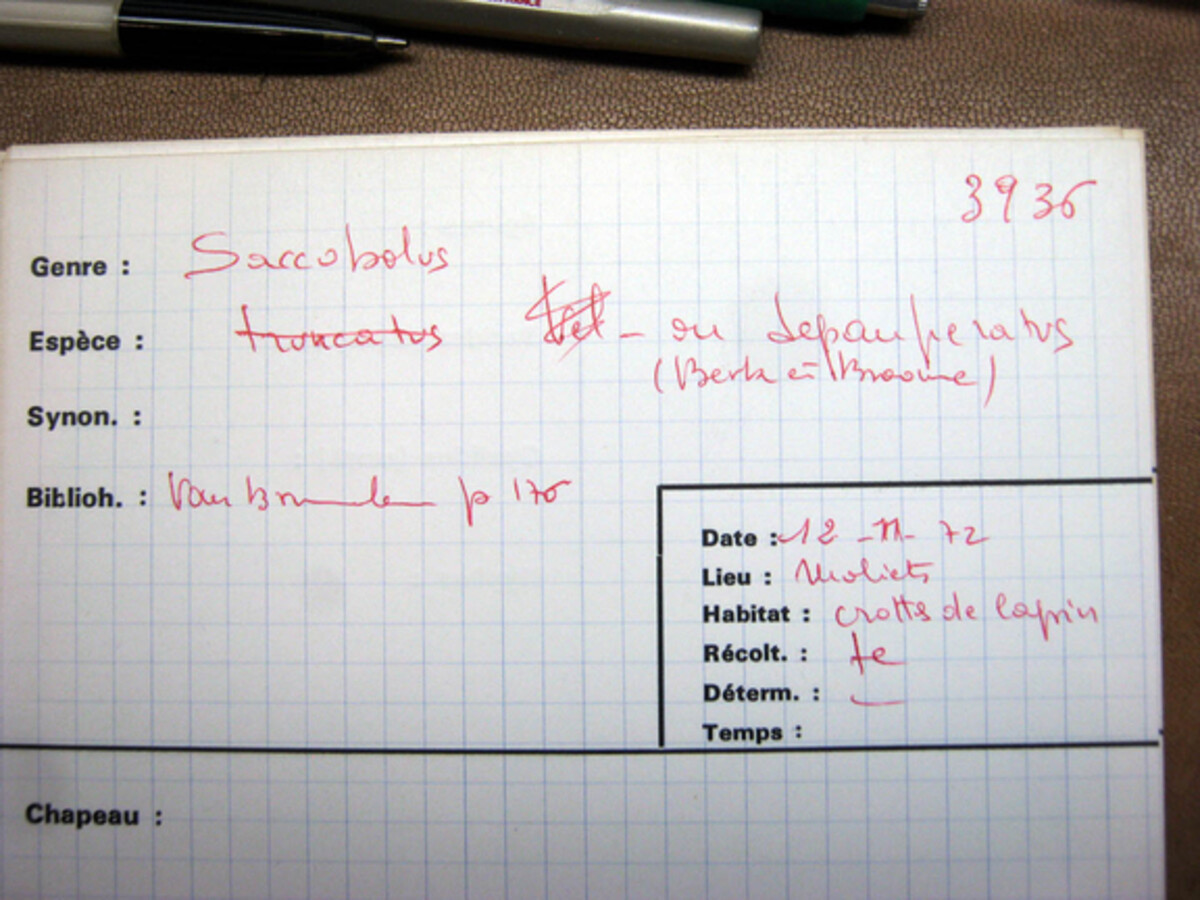 3936
Genre : Saccobolus
Espèce : truncatus - ou depauperatus
(Berk et Broome)
Synon. :
Biblioh. : Van Brummelen p 176
Date : 12 -11- 72
Lieu : Moliets
Habitat : crottes de lapin
Récolt. :
Déterm. :
Temps :
Chapeau :